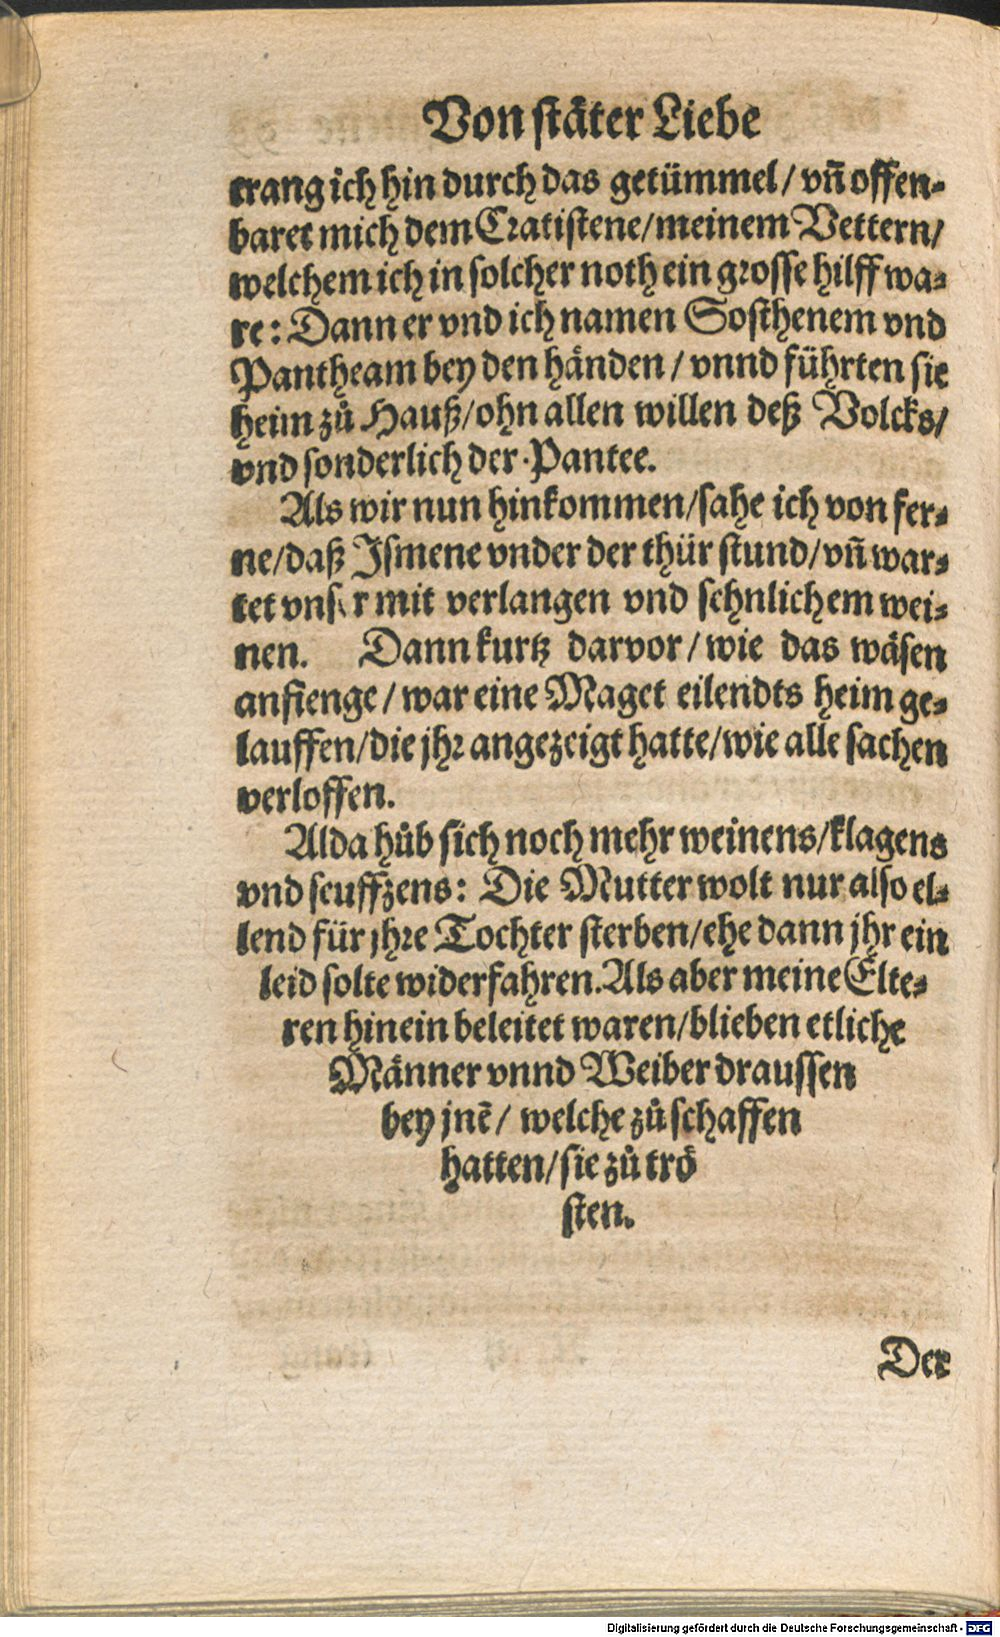 Von stäter Liebe
trang ich hin durch das getümmel / vñ offen-
baret mich dem Cratistene / meinem Vettern /
welchem ich in solcher noth ein grosse hilff wa-
re: Dann er vnd ich namen Sosthenem vnd
Pantheam bey den händen / vnnd führten sie
heim zů Hauß / ohn allen willen deß Volcks /
vnd sonderlich der Pantee.
Als wir nun hinkommen / sahe ich von fer-
ne / daß Ismene vnder der thür stund / vñ war-
tet vnser mit verlangen vnd sehnlichem wei-
nen. Dann kurtz darvor / wie das wäsen
anfienge / war eine Maget eilendts heim ge-
lauffen / die jhr angezeigt hatte / wie alle sachen
verloffen.
Alda hůb sich noch mehr weinens / klagens
vnd seuffzens: Die Mutter wolt nur also el-
lend für jhre Tochter sterben / ehe dann jhr ein
leid solte widerfahren. Als aber meine Elte-
ren hinein beleitet waren / blieben etliche
Männer vnnd Weiber draussen
bey jnē / welche zů schaffen
hatten / sie zů trö
sten.
Der
Digitalisierung gefördert durch die Deutsche Forschungsgemeinschaft - DFG